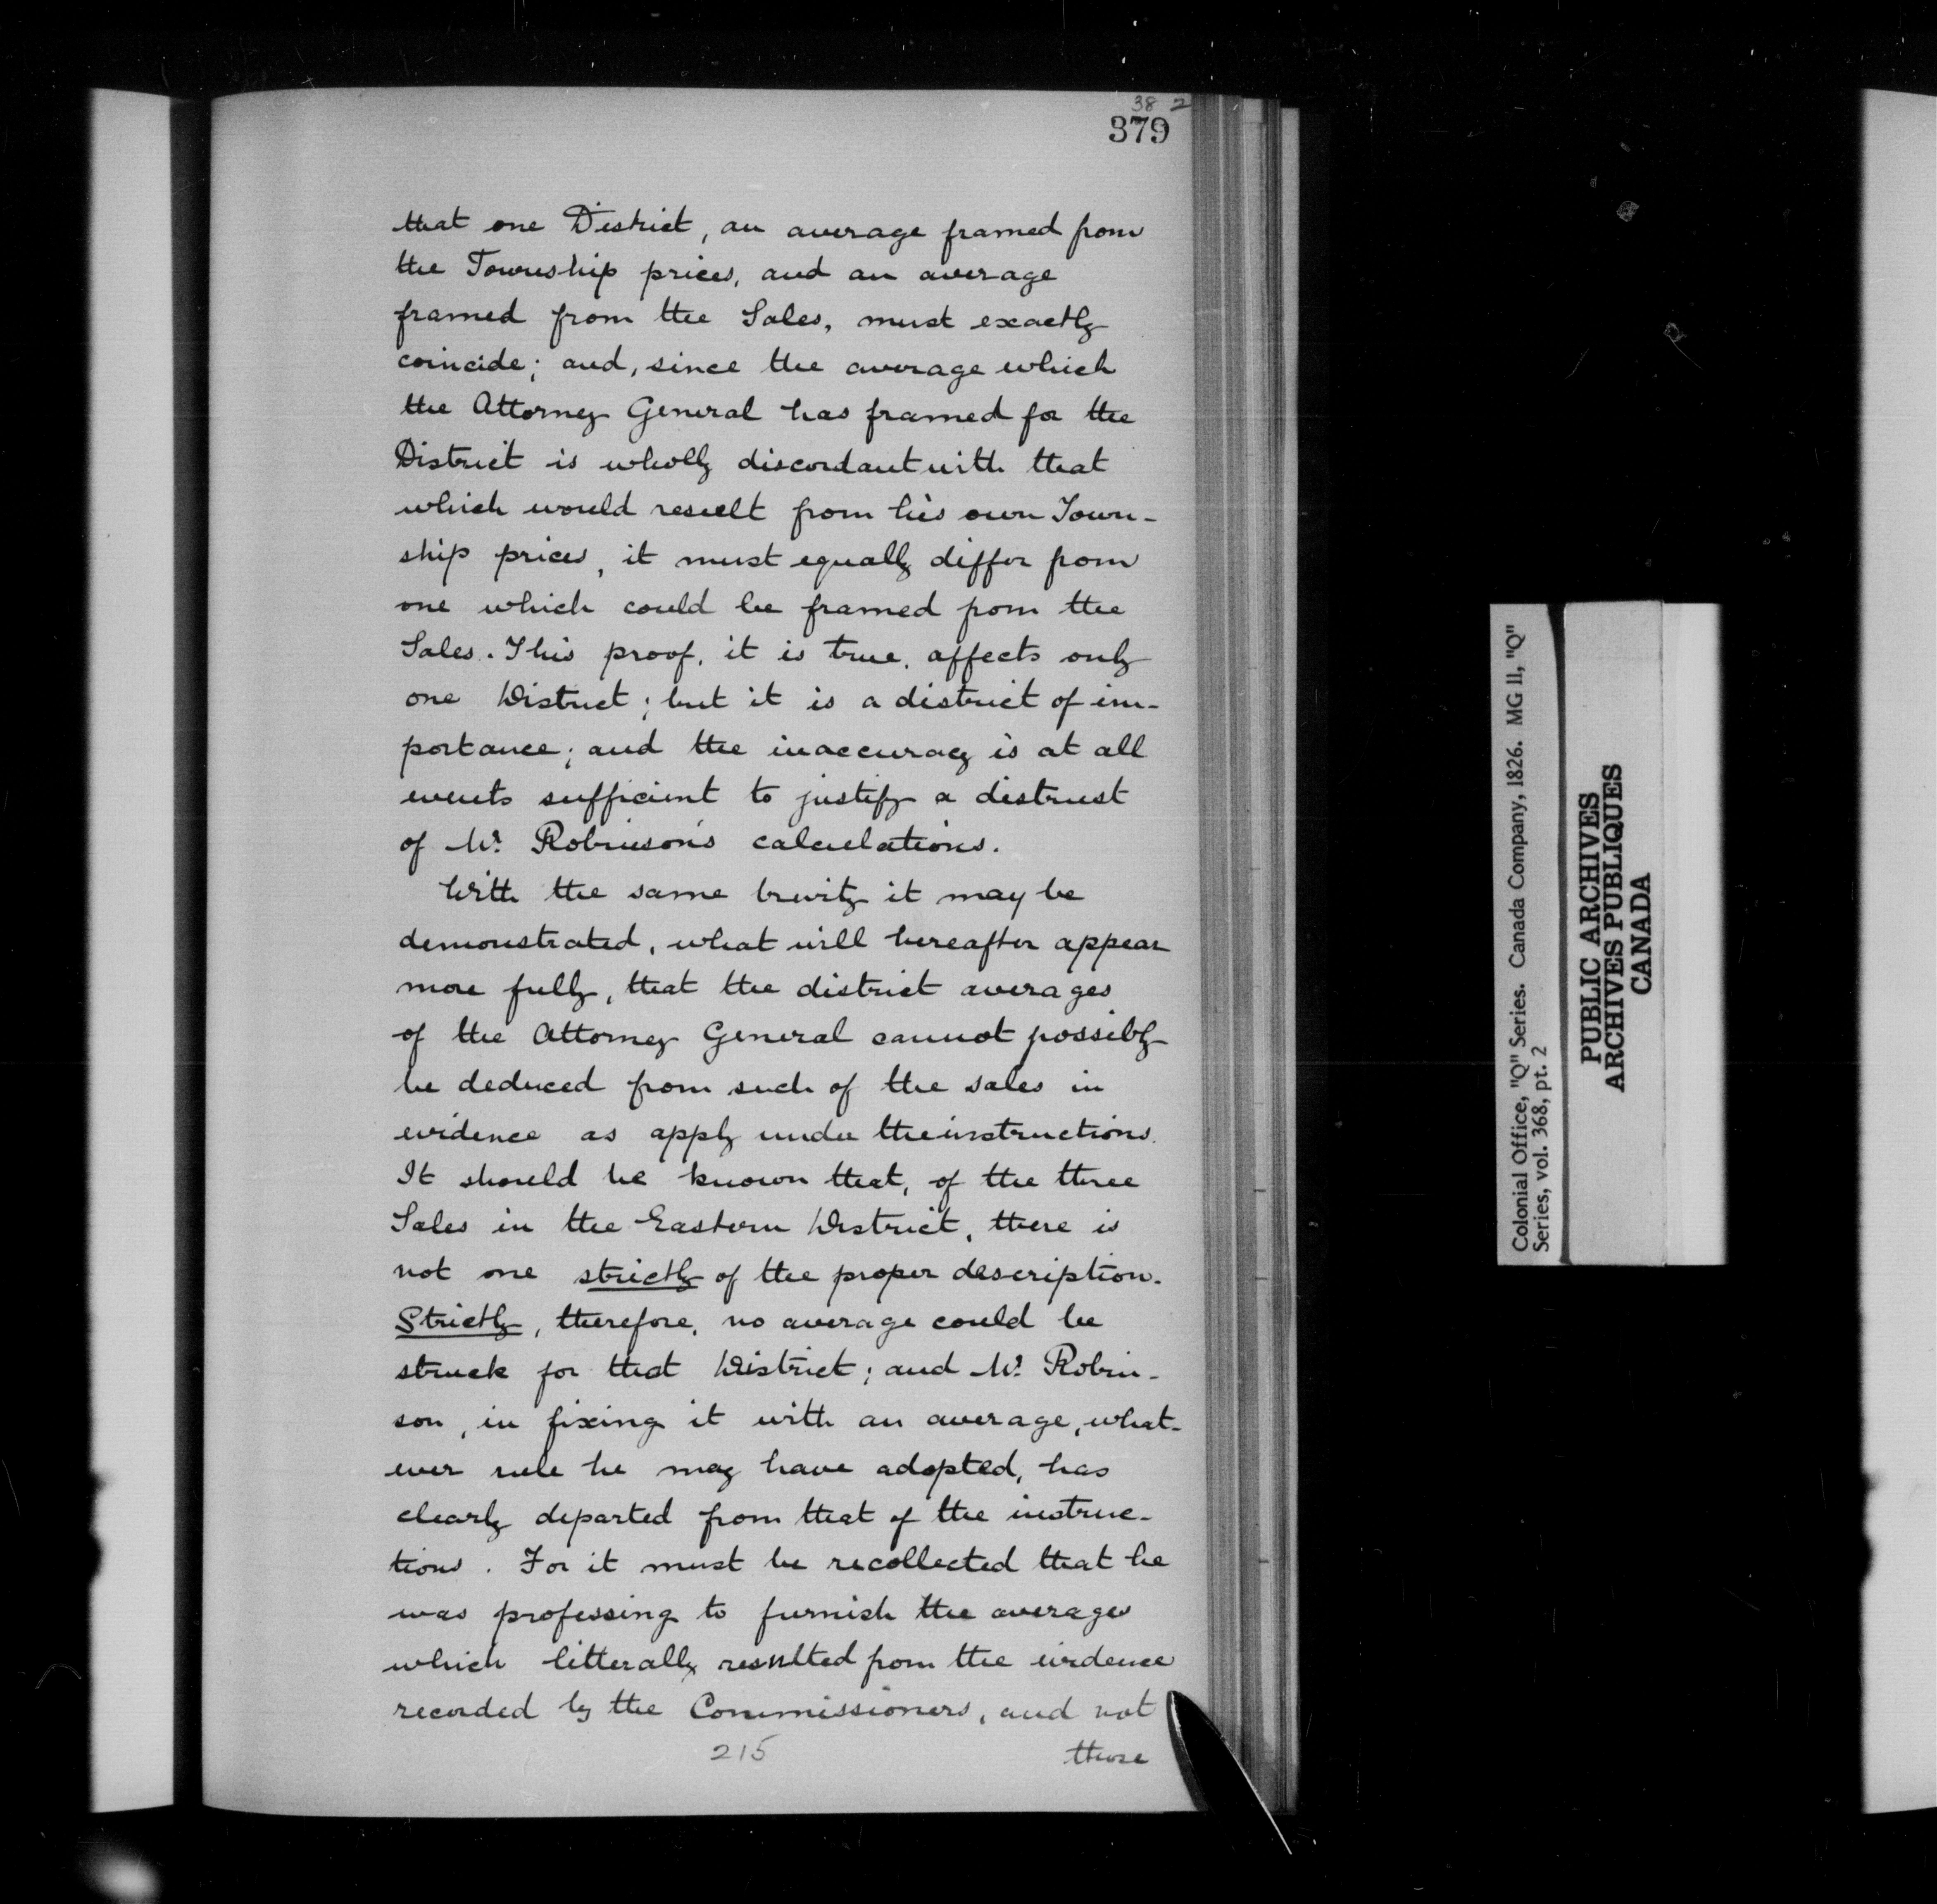 38 2
379
that one District, an average framed from
the Township prices, and an average
framed from the Sales, must exactly
coincide; and, since the average which
the Attorney General has framed for the
District is wholly discordant with that
which would result from his own Town-
ship prices, it must equally differ from
one which could be framed from the
Sales. This proof, it is true, affects only
one District; but it is a district of im-
portance; and the inaccuracy is at all
events sufficient to justify a distrust
of Mr. Robinson's calculations.
With the same brevity it may be
demonstrated, what will hereafter appear
more fully, that the district averages
of the Attorney General cannot possibly
be deduced from such of the sales in
evidence as apply under the instructions.
It should be known that, of the three
Sales in the Eastern District, there is
not one strictly of the proper description.
Strictly, therefore, no average could be
struck for that District; and Mr. Robin-
son, in fixing it with an average, what-
ever rule he may have adopted, has
clearly departed from that of the instruc-
tions. For it must be recollected that he
was professing to furnish the averages
which litterally resulted from the evidence
recorded by the Commissioners, and not
215
those
Colonial Office, "Q" Series. Canada Company, 1826. MG 11, "Q"
Series, vol. 368, pt. 2
PUBLIC ARCHIVES
ARCHIVES PUBLIQUES
CANADA